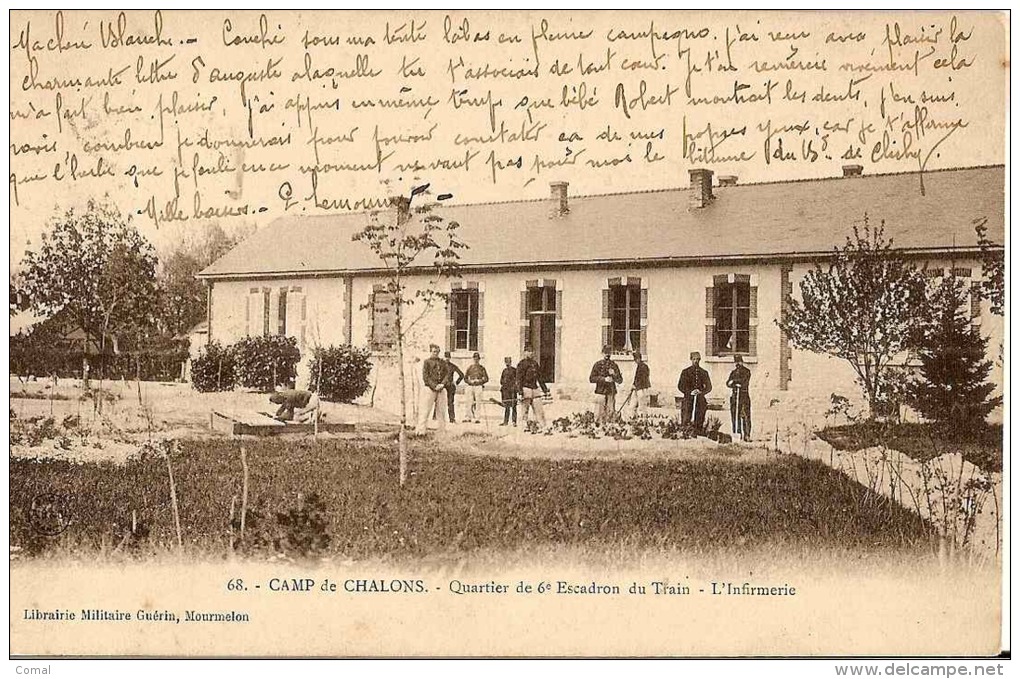 Ma chère Blanche. - Couché sous ma tente là bas en pleine campagne, j'ai reçu avec plaisir la
charmante lettre d'Auguste à laquelle tu t'associais de tout cœur. Je t'en remercie vivement cela
m'a fait bien plaisir, j'ai appris en même temps que bébé Robert montrait les dents, j'en suis
combien je donnerais pour pouvoir constater ça de mes propres yeux, car je t'affirme
que l'herbe que je foule en ce moment ne vaut pas pour moi le bitume du Bd de Clichy.
Mille baisers. - G. Lemoine
68. - CAMP de CHALONS. - Quartier de 6e Escadron du Train - L'Infirmerie
Librairie Militaire Guérin, Mourmelon
Comal
www.delcampe.net